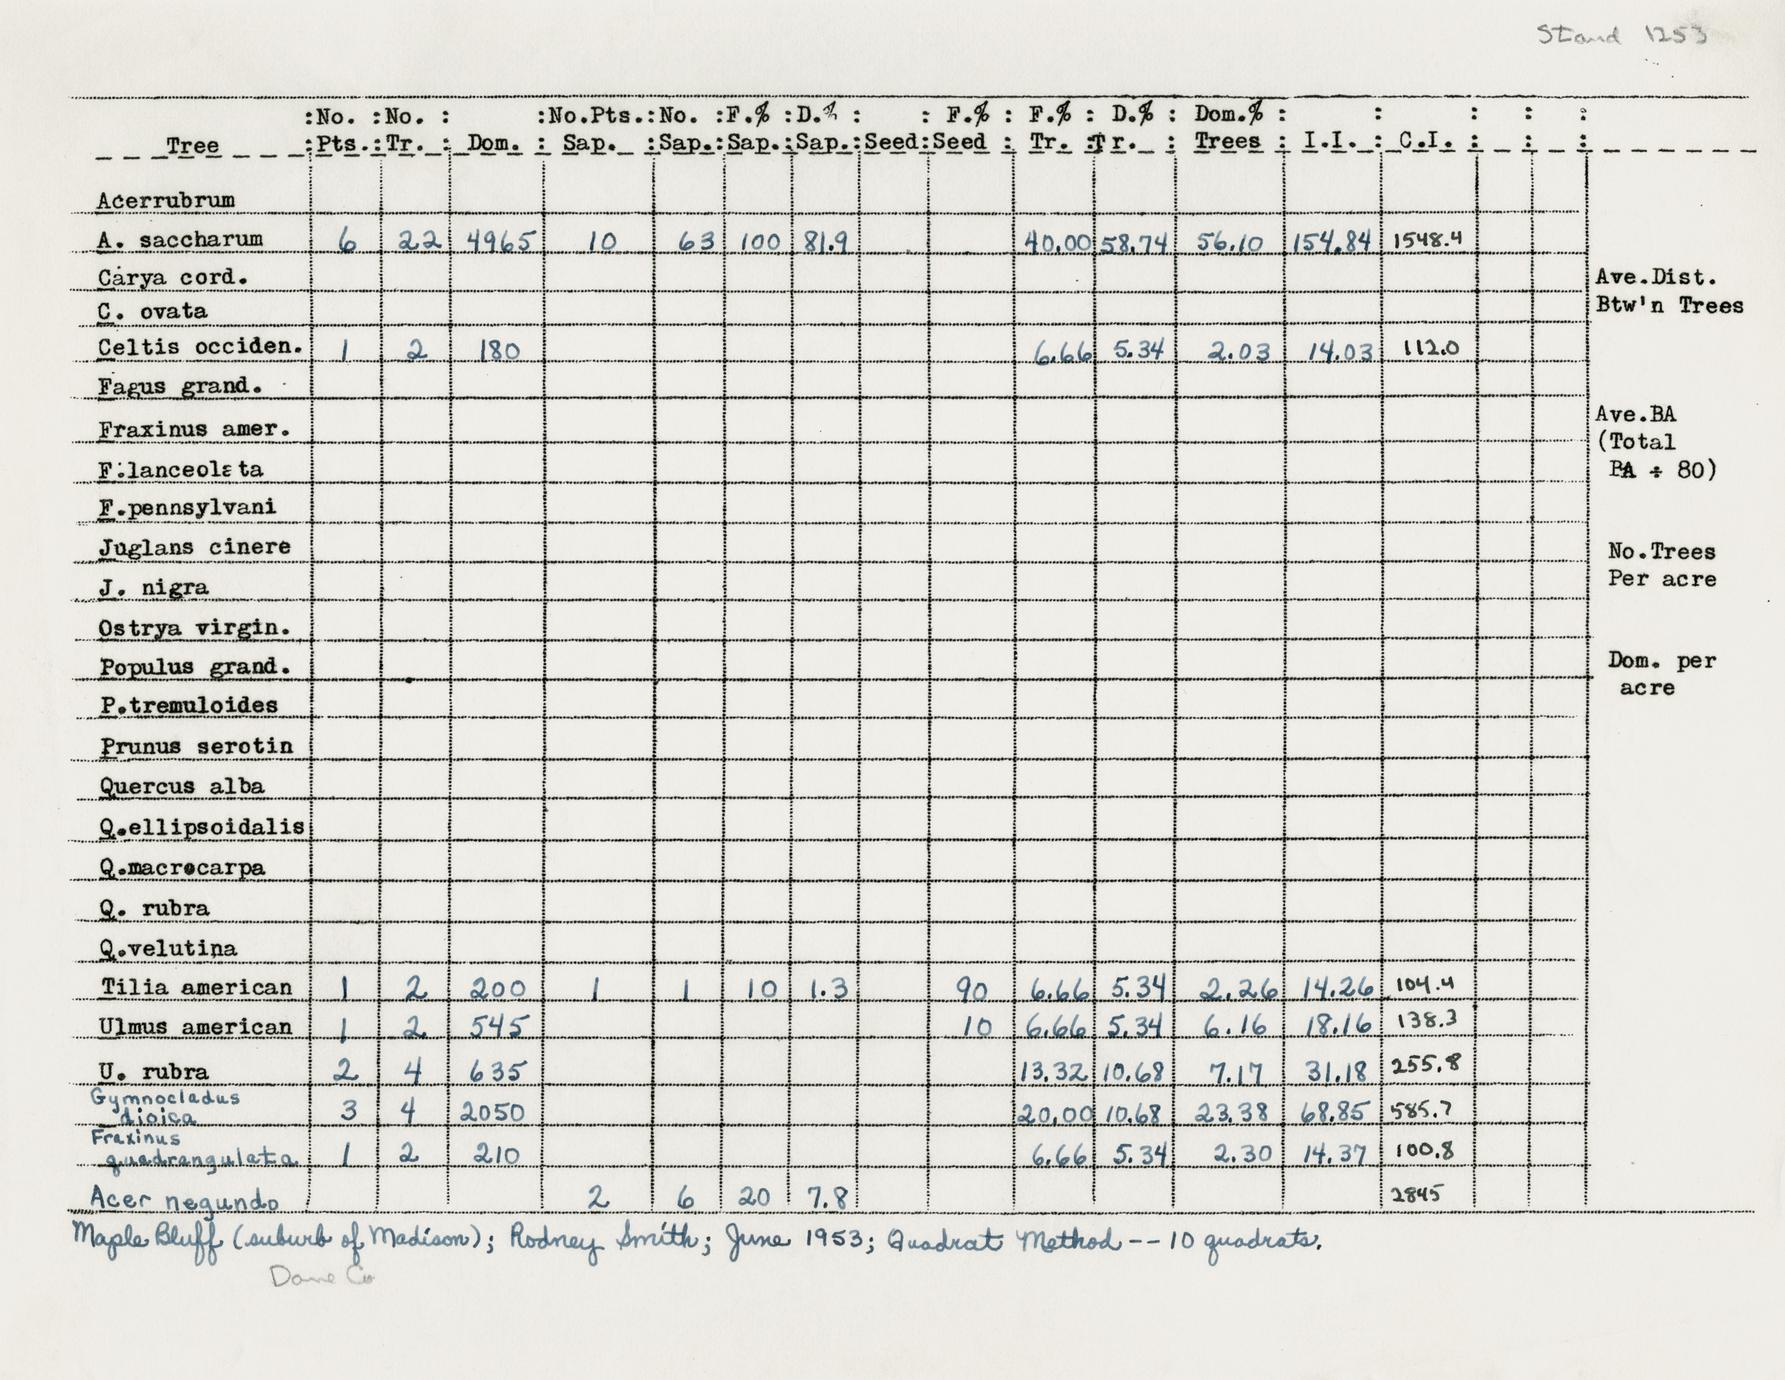 Stand 1253
:No. :No. : :No.Pts.:No. :F.% :D.% : : F.% : F.% : D.% : Dom.% : : : : :
Tree :Pts.:Tr. : Dom. : Sap. :Sap.:Sap.:Sap.:Seed:Seed : Tr. :Tr. : Trees : I.I. : C.I. : : :
Acerrubrum
A. saccharum 6 22 4965 10 63 100 81.9 40.00 58.74 56.10 154.84 1548.4
Carya cord.
Ave.Dist.
C. ovata
Btw'n Trees
Celtis occiden. 1 2 180 6.66 5.34 2.03 14.03 112.0
Fagus grand.
Ave.BA
Fraxinus amer.
(Total
F.lanceolata
BA ÷ 80)
F.pennsylvani
Juglans cinere
No.Trees
J. nigra
Per acre
Ostrya virgin.
Populus grand.
Dom. per
acre
P.tremuloides
Prunus serotin
Quercus alba
Q.ellipsoidalis
Q.macrocarpa
Q. rubra
Q.velutina
Tilia american 1 2 200 1 1 10 1.3 90 6.66 5.34 2.26 14.26 104.4
Ulmus american 1 2 545 10 6.66 5.34 6.16 18.16 138.3
U. rubra 2 4 635 13.32 10.68 7.17 31.18 255.8
Gymnocladus
dioica 3 4 2050 20.00 10.68 23.38 68.85 585.7
Fraxinus
quadrangulata 1 2 210 6.66 5.34 2.30 14.37 100.8
Acer negundo 2 6 20 7.8 2845
Maple Bluff (suburb of Madison); Rodney Smith; June 1953; Quadrat Method -- 10 quadrats.
Dane Co